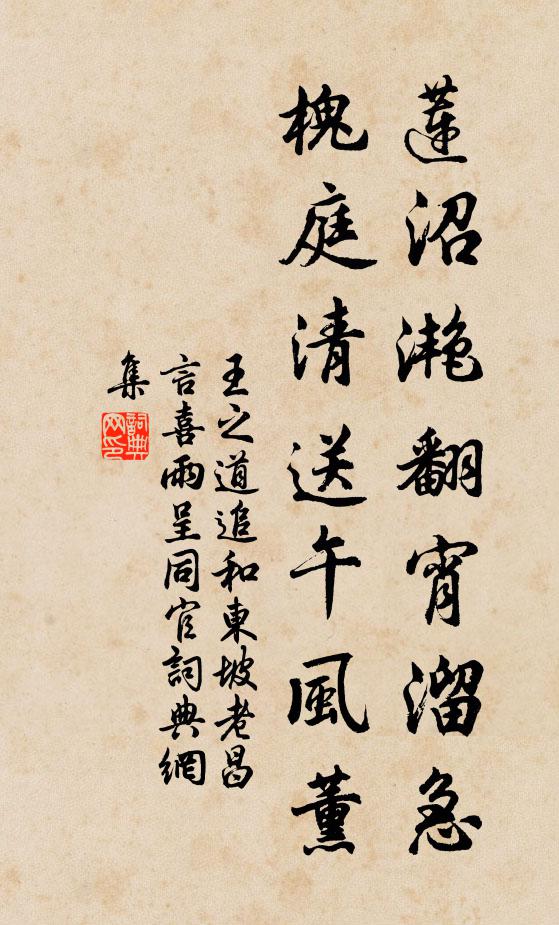 蓮沼灔翻宵溜急
槐庭清送午風薰
王之道追和東坡老昌
言喜雨呈同官詞典網
集
詞典
網印